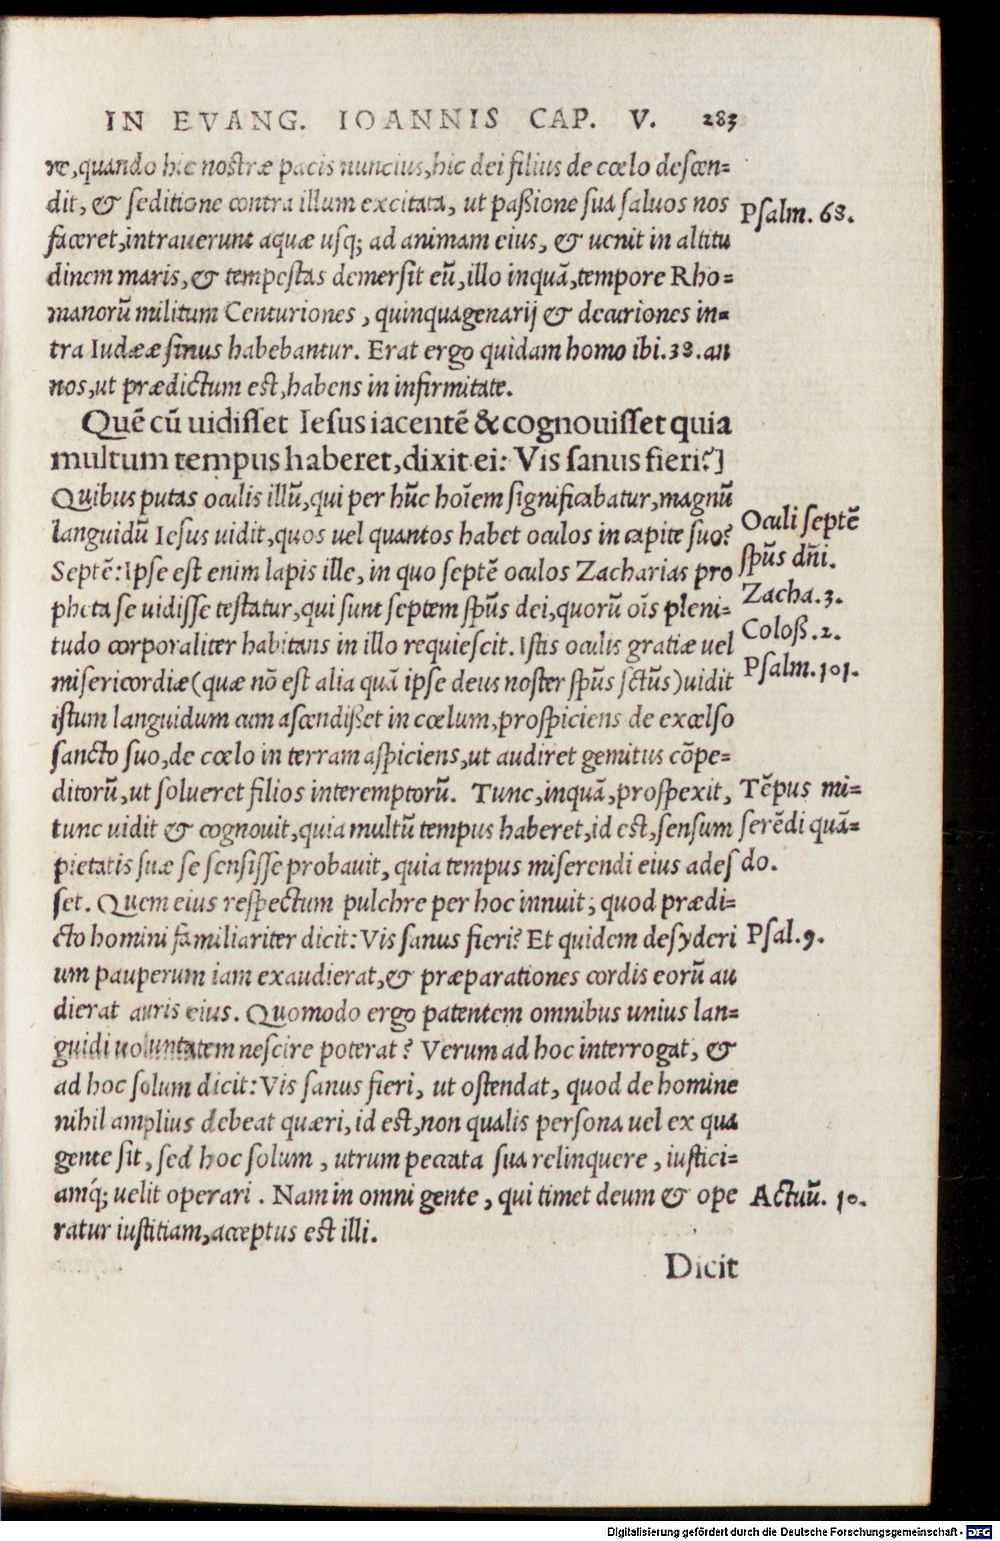 IN EVANG. IOANNIS CAP. V. 283
re, quando hic nostræ pacis nuncius, hic dei filius de cœlo descen-
dit, & seditione contra illum excitata, ut paßione sua saluos nos
Psalm. 68.
faceret, intrauerunt aquæ usq; ad animam eius, & uenit in altitu
dinem maris, & tempestas demersit eũ, illo inquã, tempore Rho-
manorũ militum Centuriones, quinquagenarij & decuriones in-
tra Iudææ sinus habebantur. Erat ergo quidam homo ibi. 38. an
nos, ut prædictum est, habens in infirmitate.
Quẽ cũ uidisset Iesus iacentẽ & cognouisset quia
multum tempus haberet, dixit ei: Vis sanus fieri?]
Quibus putas oculis illũ, qui per hũc hoĩem significabatur, magnũ
languidũ Iesus uidit, quos uel quantos habet oculos in capite suo?
Oculi septẽ
Septẽ: Ipse est enim lapis ille, in quo septẽ oculos Zacharias pro
spũs dñi.
pheta se uidisse testatur, qui sunt septem spũs dei, quorũ oĩs pleni-
Zacha. 3.
tudo corporaliter habitans in illo requiescit. Istis oculis gratiæ uel
Coloß. 2.
misericordiæ (quæ nõ est alia quã ipse deus noster spũs sctũs) uidit
Psalm. 101.
istum languidum cum ascendißet in cœlum, prospiciens de excelso
sancto suo, de cœlo in terram aspiciens, ut audiret gemitus cõpe-
ditorũ, ut solueret filios interemptorũ. Tunc, inquã, prospexit,
Tẽpus mi-
tunc uidit & cognouit, quia multũ tempus haberet, id est, sensum
serẽdi quã-
pietatis suæ se sensisse probauit, quia tempus miserendi eius ades
do.
set. Quem eius respectum pulchre per hoc innuit, quod prædi-
cto homini familiariter dicit: Vis sanus fieri? Et quidem desyderi
Psal. 9.
um pauperum iam exaudierat, & præparationes cordis eorũ au
dierat auris eius. Quomodo ergo patentem omnibus unius lan-
guidi uoluntatem nescire poterat? Verum ad hoc interrogat, &
ad hoc solum dicit: Vis sanus fieri, ut ostendat, quod de homine
nihil amplius debeat quæri, id est, non qualis persona uel ex qua
gente sit, sed hoc solum, utrum peccata sua relinquere, iustici-
amq́; uelit operari. Nam in omni gente, qui timet deum & ope
Actuũ. 10.
ratur iustitiam, acceptus est illi.
Dicit
Digitalisierung gefördert durch die Deutsche Forschungsgemeinschaft - DFG